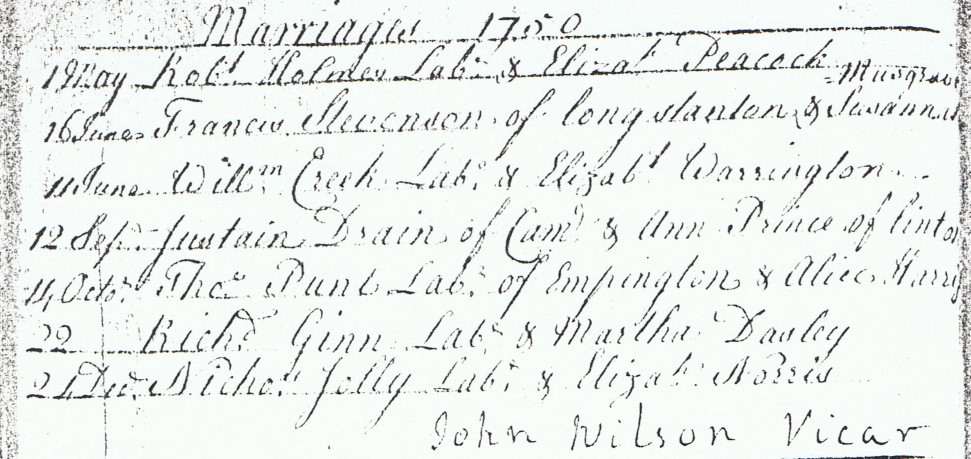 Marriages 1750
19 May Robt. Holmes Labr. & Elizabt. Peacock
16 June Francis Stevenson of long stanton & Susannah Musgrave
June Willm. Creek Labr. & Elizabt. Warrington
12 Sepr. Justain Drain of Camd. & Ann Prince of linton
Octor. Thos. Punt Labr. of Empington & Alice Harris
22 Richd. Ginn Labr. & Martha Dasley
Decr. Nichos. Jolly Labr. & Elizabt. Norris
John Wilson Vicar